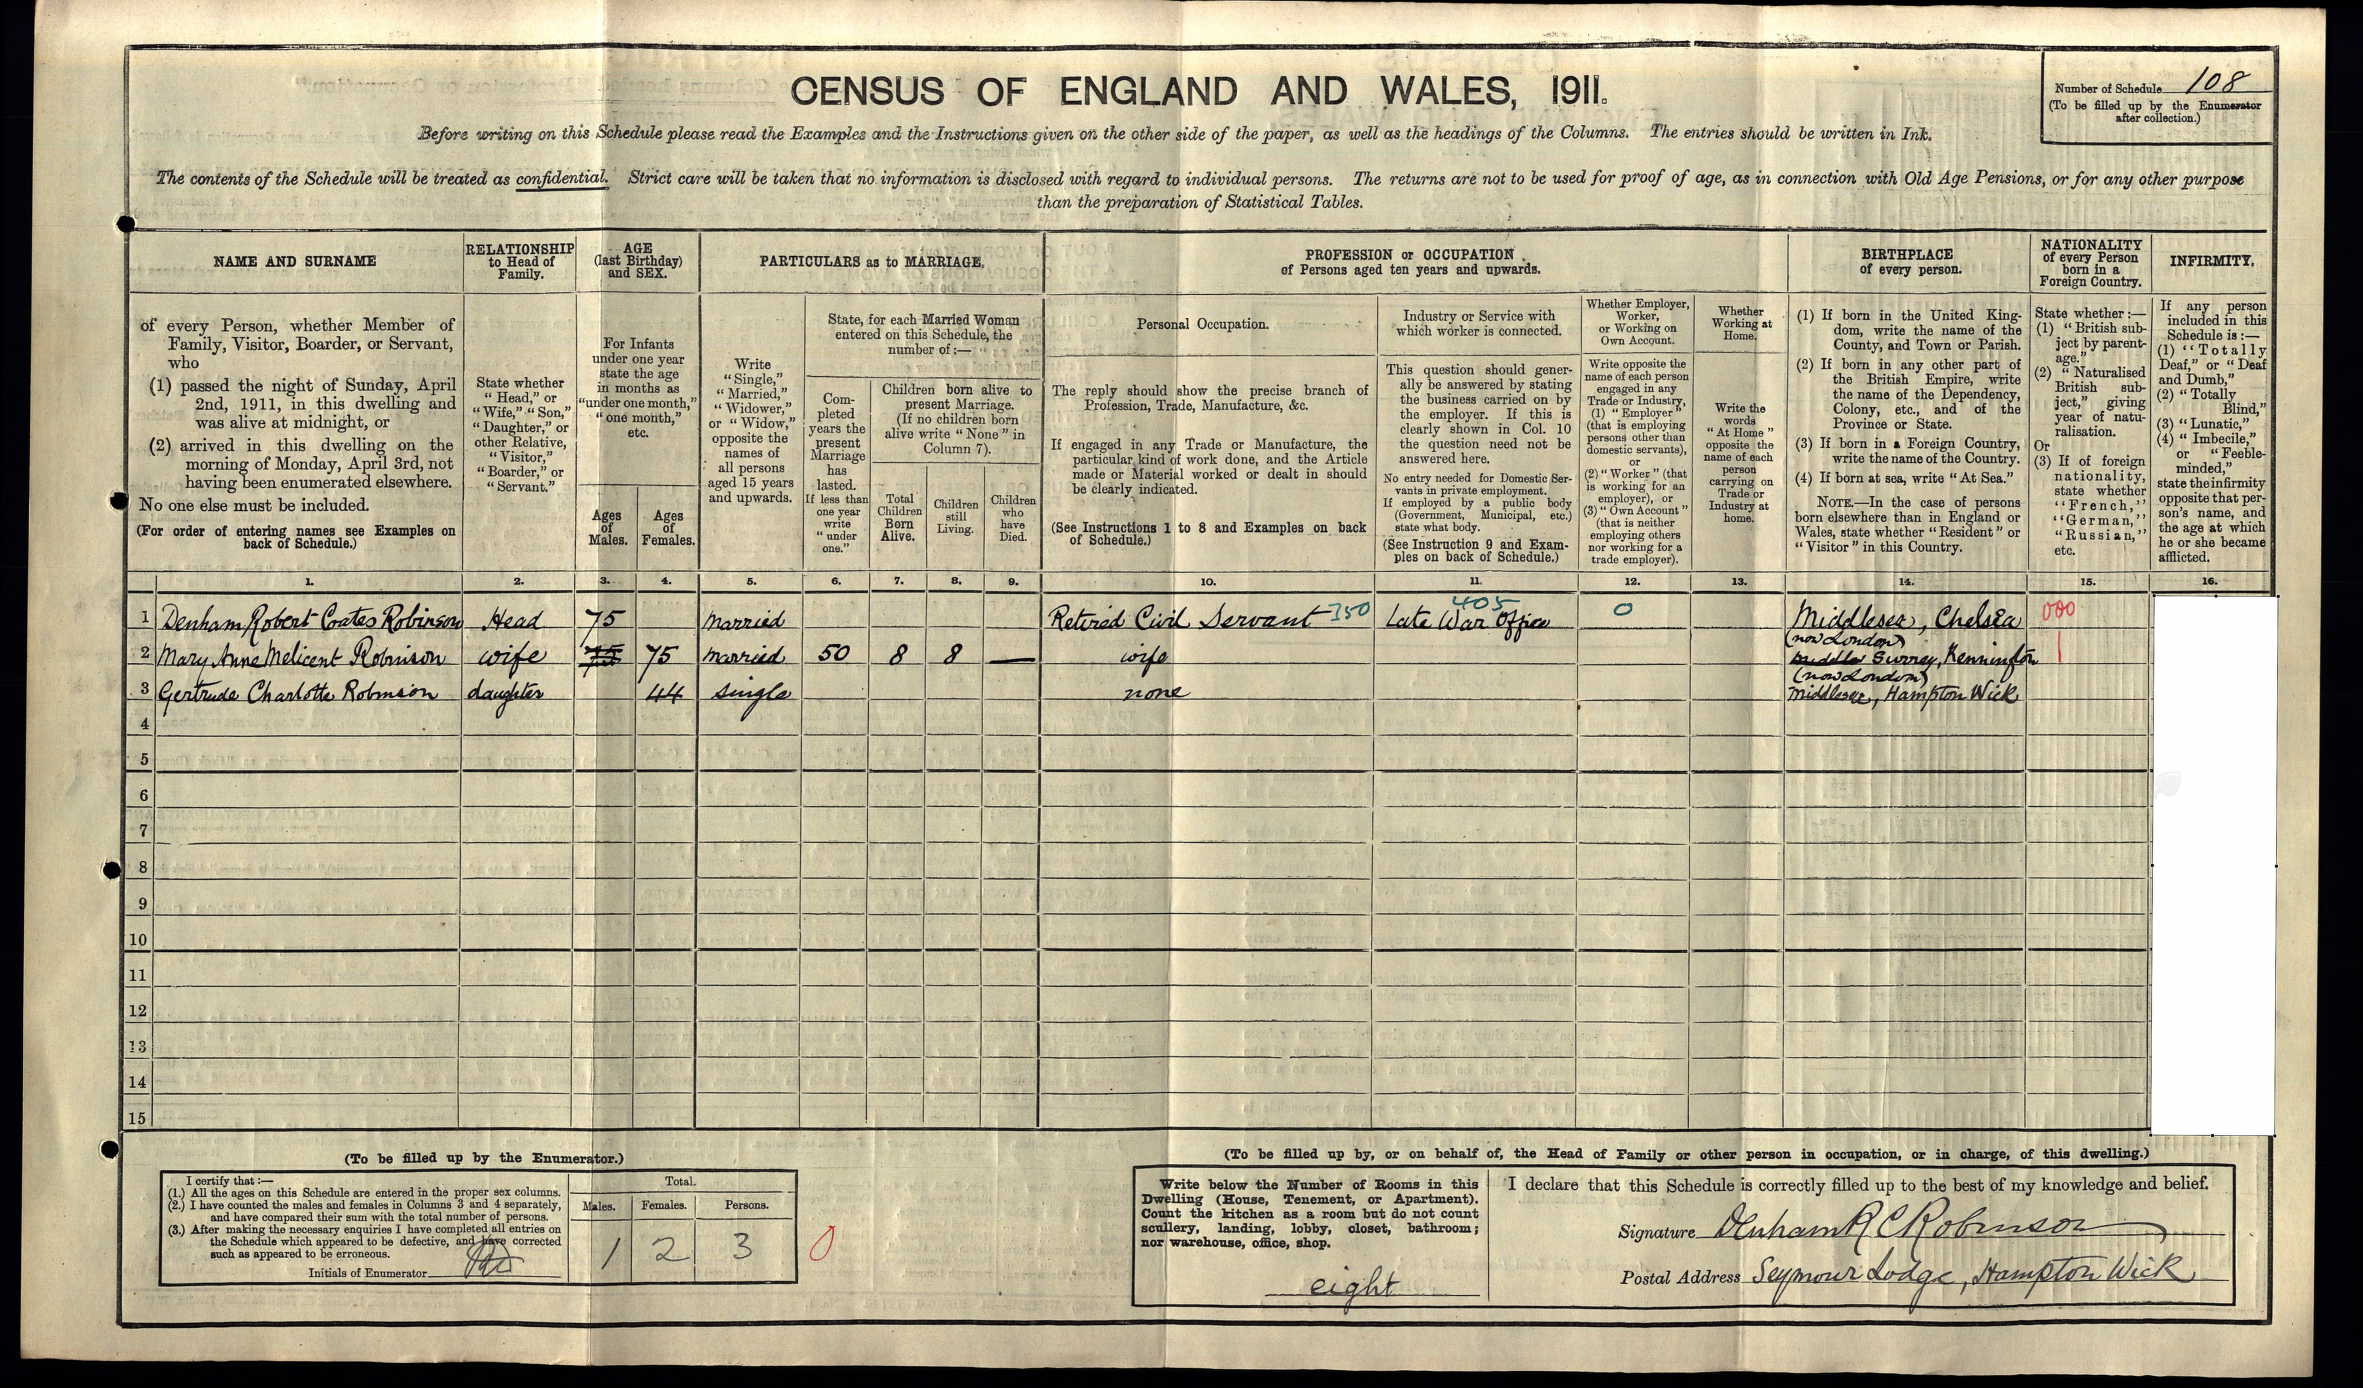 CENSUS OF ENGLAND AND WALES, 1911.
Number of Schedule 108
(To be filled up by the Enumerator
after collection.)
Before writing on this Schedule please read the Examples and the Instructions given on the other side of the paper, as well as the headings of the Columns. The entries should be written in Ink.
The contents of the Schedule will be treated as confidential. Strict care will be taken that no information is disclosed with regard to individual persons. The returns are not to be used for proof of age, as in connection with Old Age Pensions, or for any other purpose
than the preparation of Statistical Tables.
NAME AND SURNAME
of every Person, whether Member of
Family, Visitor, Boarder, or Servant,
who
(1) passed the night of Sunday, April
2nd, 1911, in this dwelling and
was alive at midnight, or
(2) arrived in this dwelling on the
morning of Monday, April 3rd, not
having been enumerated elsewhere.
No one else must be included.
(For order of entering names see Examples on
back of Schedule.)
RELATIONSHIP
to Head of
Family.
State whether
"Head," or
"Wife," "Son,"
"Daughter," or
other Relative,
"Visitor,"
"Boarder," or
"Servant."
AGE
(last Birthday)
and SEX.
For Infants
under one year
state the age
in months as
"under one month,"
"one month,"
etc.
Ages
of
Males.
Ages
of
Females.
PARTICULARS as to MARRIAGE.
Write
"Single,"
"Married,"
"Widower,"
or "Widow,"
opposite the
names of
all persons
aged 15 years
and upwards.
State, for each Married Woman
entered on this Schedule, the
number of:—
Com-
pleted
years the
present
Marriage
has
lasted.
If less than
one year
write
"under
one."
Children born alive to
present Marriage.
(If no children born
alive write "None" in
Column 7).
Total
Children
Born
Alive.
Children
still
Living.
Children
who
have
Died.
PROFESSION or OCCUPATION
of Persons aged ten years and upwards.
Personal Occupation.
The reply should show the precise branch of
Profession, Trade, Manufacture, &c.
If engaged in any Trade or Manufacture, the
particular kind of work done, and the Article
made or Material worked or dealt in should
be clearly indicated.
(See Instructions 1 to 8 and Examples on back
of Schedule.)
Industry or Service with
which worker is connected.
This question should gener-
ally be answered by stating
the business carried on by
the employer. If this is
clearly shown in Col. 10
the question need not be
answered here.
No entry needed for Domestic Ser-
vants in private employment.
If employed by a public body
(Government, Municipal, etc.)
state what body.
(See Instruction 9 and Exam-
ples on back of Schedule.)
Whether Employer,
Worker,
or Working on
Own Account.
Write opposite the
name of each person
engaged in any
Trade or Industry,
(1) "Employer"
(that is employing
persons other than
domestic servants),
or
(2) "Worker" (that
is working for an
employer), or
(3) "Own Account"
(that is neither
employing others
nor working for a
trade employer).
Whether
Working at
Home.
Write the
words
"At Home"
opposite the
name of each
person
carrying on
Trade or
Industry at
home.
BIRTHPLACE
of every person.
(1) If born in the United King-
dom, write the name of the
County, and Town or Parish.
(2) If born in any other part of
the British Empire, write
the name of the Dependency,
Colony, etc., and of the
Province or State.
(3) If born in a Foreign Country,
write the name of the Country.
(4) If born at sea, write "At Sea."
NOTE.—In the case of persons
born elsewhere than in England or
Wales, state whether "Resident" or
"Visitor" in this Country.
NATIONALITY
of every Person
born in a
Foreign Country.
State whether:—
(1) "British sub-
ject by parent-
age."
(2) "Naturalised
British sub-
ject," giving
year of natu-
ralisation.
Or
(3) If of foreign
nationality,
state whether
"French,"
"German,"
"Russian,"
etc.
INFIRMITY.
If any person
included in this
Schedule is:—
(1) "Totally
Deaf," or "Deaf
and Dumb,"
(2) "Totally
Blind,"
(3) "Lunatic,"
(4) "Imbecile,"
or "Feeble-
minded,"
state the infirmity
opposite that per-
son's name, and
the age at which
he or she became
afflicted.
1. 2. 3. 4. 5. 6. 7. 8. 9. 10. 11. 12. 13. 14. 15. 16.
1 Denham Robert Coates Robinson Head 75 Married Retired Civil Servant 350 Late War Office 405 0 Middlesex, Chelsea 000
(now London)
2 Mary Anne Melicent Robinson wife 75 75 Married 50 8 8 — wife Surrey, Kennington 1
(now London)
3 Gertrude Charlotte Robinson daughter 44 single none Middlesex, Hampton Wick
4
5
6
7
8
9
10
11
12
13
14
15
(To be filled up by the Enumerator.)
I certify that:—
(1.) All the ages on this Schedule are entered in the proper sex columns.
(2.) I have counted the males and females in Columns 3 and 4 separately,
and have compared their sum with the total number of persons.
(3.) After making the necessary enquiries I have completed all entries on
the Schedule which appeared to be defective, and have corrected
such as appeared to be erroneous.
Initials of Enumerator
Total.
Males. Females. Persons.
1 2 3 0
(To be filled up by, or on behalf of, the Head of Family or other person in occupation, or in charge, of this dwelling.)
Write below the Number of Rooms in this
Dwelling (House, Tenement, or Apartment).
Count the kitchen as a room but do not count
scullery, landing, lobby, closet, bathroom;
nor warehouse, office, shop.
eight
I declare that this Schedule is correctly filled up to the best of my knowledge and belief.
Signature Denham R C Robinson
Postal Address Seymour Lodge, Hampton Wick